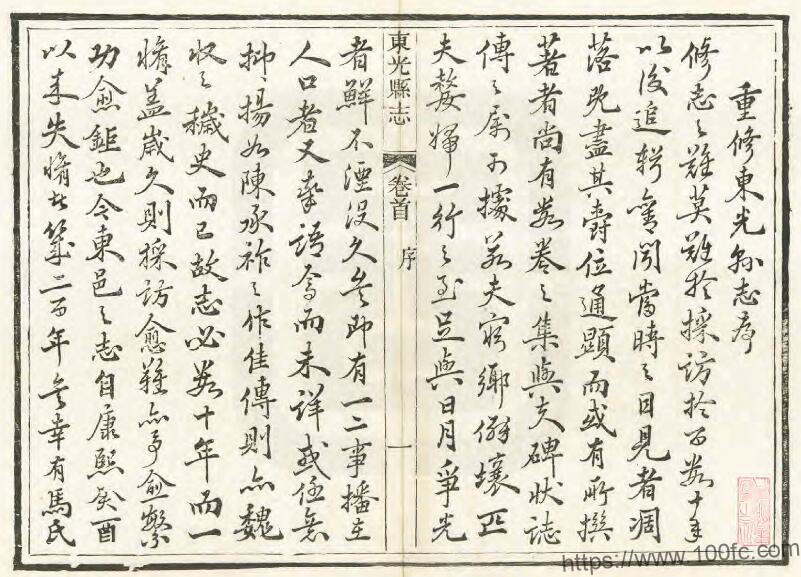 重修東光縣志序
修志之難莫難於採訪於百數十年
以後追輯舊聞當時之目見者凋
落既盡其爵位通顯而或有所撰
著者尚有數卷之集與夫碑狀誌
傳之屬可據若夫窮鄉僻壤匹
夫嫠婦一行之至足與日月爭光
東光縣志 卷首 序 一
者鮮不湮沒久矣即有一二事播在
人口者又率語焉而未詳或任意
抑揚如陳承祚之作佳傳則亦魏
收之穢史而已故志必數十年而一
脩蓋歲久則採訪愈難亦事愈繁
功愈鉅也今東邑之志自康熙癸酉
以來失脩者幾二百年矣幸有馬氏
https://www.100fc.com